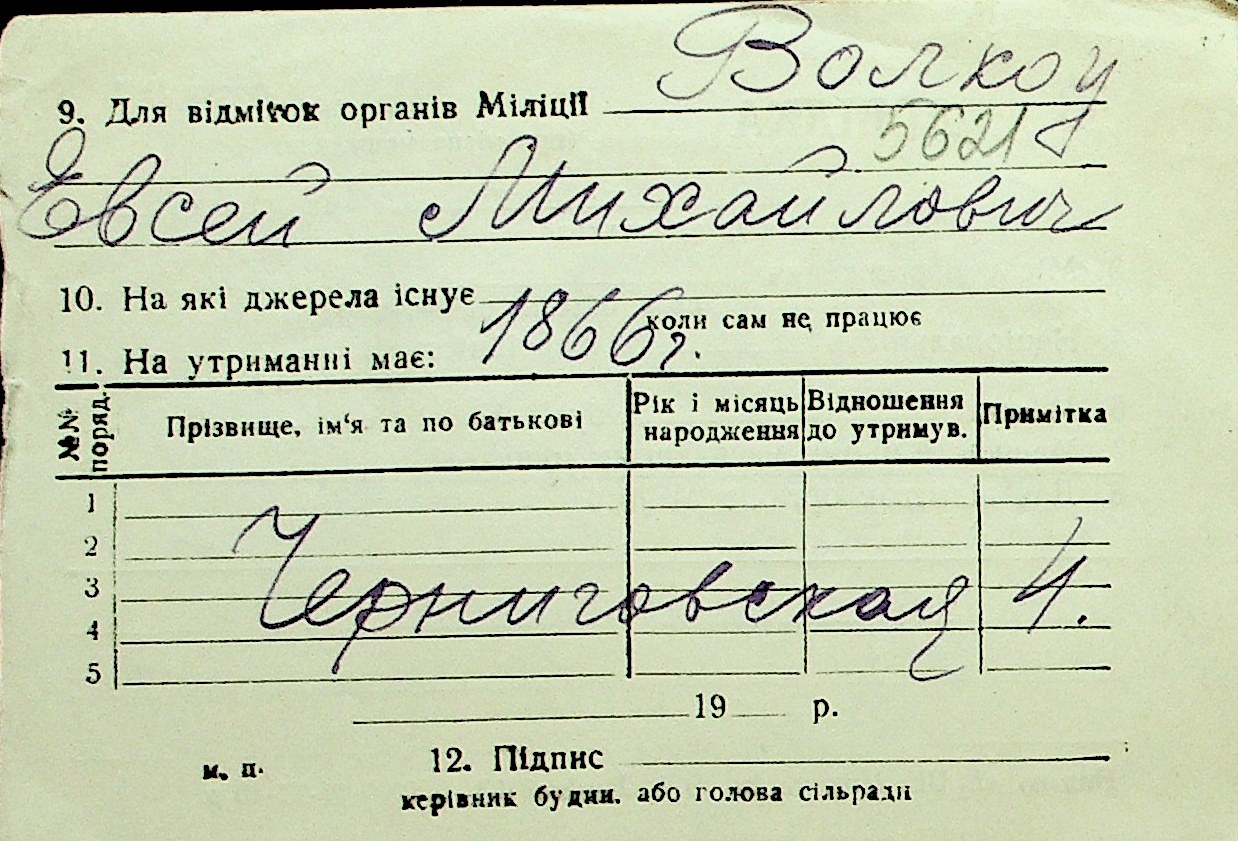 Волкоч
9. Для відміток органів Міліції
5621
Евсей Михайлович
10. На які джерела існує
1866 г.
коли сам не працює
11. На утриманні має:
№№ поряд. Прізвище, ім‘я та по батькові Рік і місяць народження Відношення до утримув. Примітка
1
2
3
4
5
Черниговская 4.
19 р.
м. п. 12. Підпис
керівник будин. або голова сільради